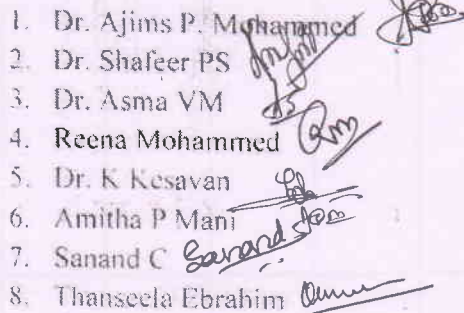 1. Dr. Ajims P. Mohammed
2. Dr. Shafeer PS
3. Dr. Asma VM
4. Reena Mohammed
5. Dr. K Kesavan
6. Amitha P Mani
7. Sanand C Sanand
8. Thanseela Ebrahim